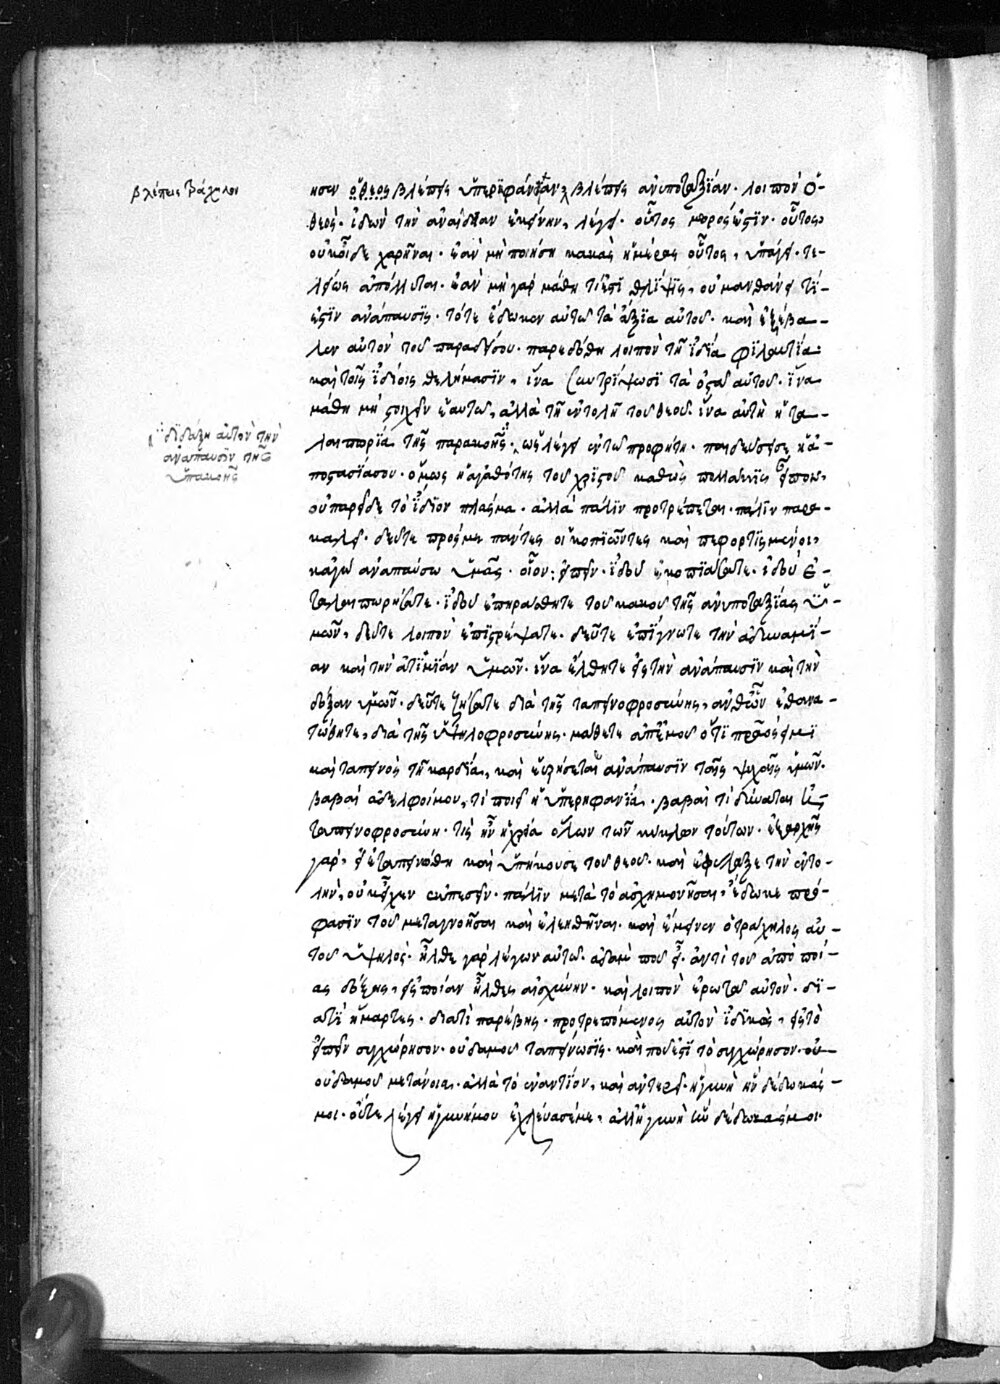 βλέπεις τράχηλον
ησεν ὁ θεος βλέπεις ὑπερηφάνειαν, βλέπεις ἀνυποταξίαν. λοιπὸν ὁ
θεὸς. ἰδὼν τὴν ἀναίδειαν ἐκείνην, λέγει. οὗτος μωρός ἐστϊν. οὗτος
οὐκ οἶδε χαρῆναι. ἐὰν μὴ ποιήση κακὰς ἡμέρας οὗτος, ὑπάγει τε-
λείως ἀπόλλυται. ἐὰν μὴ γὰρ μάθη τί ἐστϊ θλῖψϊς, οὐ μανθάνει τί
ἐστϊν ἀνάπαυσϊς. τότε ἔδωκεν αὐτῶ τὰ ἄξϊα αὐτοῦ. καὶ ἐξέβα-
λεν αὐτὸν τοῦ παραδείσου. παρεδόθη λοιπὸν τῆ ἰδία φϊλαυτία
καὶ τοῖς ἰδίοις θελήμασϊν, ἵνα συντρίψωσϊ τὰ ὀστᾶ αὐτοῦ. ἵνα
μάθη μὴ στοιχεῖν ἑαυτῶ, ἀλλὰ τῆ ἐντολῆ τοῦ θεοῦ. ἵνα αὐτὴ ἡ τα-
λαιπωρία τῆς παρακοῆς. ὡς λέγει ἐν τῶ προφήτη. παιδεύσει σε ἡ ἀ-
διδάξη αὐτὸν τὴν
ἀνάπαυσϊν τῆς
ὑπακοῆς
ποστασία σου. ὅμως ἡ ἀγαθότης τοῦ χρϊστοῦ καθὼς πολλάκϊς εἶπον,
οὐ παρεῖδε τὸ ἴδϊον πλάσμα. ἀλλὰ πάλϊν προτρέπεται. πάλϊν παρα-
καλεῖ. δεῦτε πρός με πάντες οἱ κοπϊῶντες καὶ πεφορτϊσμένοι,
κἀγὼ ἀναπαύσω ὑμᾶς. οἷον εἶπεν. ἰδοὺ ἐκοπϊάσατε. ἰδοὺ ἐ-
ταλαιπωρήσατε. ἰδοὺ ἐπειράσθητε τοῦ κακοῦ τῆς ἀνυποταξίας ὑ-
μῶν, δεῦτε λοιπὸν ἐπϊστρέψατε. δεῦτε ἐπίγνωτε τὴν ἀδυναμί-
αν καὶ τὴν ἀτϊμίαν ὑμῶν. ἵνα ἔλθητε εἰς τὴν ἀνάπαυσϊν καὶ τὴν
δόξαν ὑμῶν. δεῦτε ζήσατε διὰ τῆς ταπεινοφροσύνης, ἀνθ' ὧν ἐθανα-
τώθητε, διὰ τῆς ὑψηλοφροσύνης. μάθετε ἀπ' ἐμοῦ ὅτϊ πρᾶός εἰμϊ
καὶ ταπεινὸς τῆ καρδία, καὶ εὑρήσετε ἀνάπαυσϊν ταῖς ψυχαῖς ὑμῶν.
βαβαὶ ἀδελφοί μου, τί ποιεῖ ἡ ὑπερηφανία. βαβαὶ τί δύναται ἡ
ταπεινοφροσύνη. τίς ἦν ἡ χρεία ὅλων τῶν κύκλων τούτων. ἐξ ἀρχῆς
γὰρ, εἰ ἐταπεινώθη καὶ ὑπήκουσε τοῦ θεοῦ. καὶ ἐφύλαξε τὴν ἐντο-
λὴν, οὐκ εἶχεν ἐκπεσεῖν. πάλϊν μετὰ τὸ ἀσχημονῆσαι, ἔδωκε πρό-
φασϊν τοῦ μετανοῆσαι καὶ ἐλεηθῆναι. καὶ ἔμεινεν ὁ τράχηλος αὐ-
τοῦ ὑψηλός. ἦλθε γὰρ λέγων αὐτῶ. ἀδὰμ ποῦ εἶ. ἀντὶ τοῦ ἀπὸ ποί-
ας δόξης, εἰς ποίαν ἦλθες αἰσχύνην. καὶ λοιπὸν ἐρωτᾶ αὐτὸν. δϊ-
ατϊ ἥμαρτες. διατὶ παρέβης. προτρεπόμενος αὐτὸν ἰδϊκῶς, εἰς τὸ
εἰπεῖν συγχώρησον. οὐδαμοῦ ταπείνωσϊς. καὶ ποῦ ἐστϊ τὸ συγχώρησον. οὐ-
οὐδαμοῦ μετάνοια. ἀλλὰ τὸ ἐναντίον, καὶ ἀντερεῖ. ἡ γυνὴ ἣν δέδωκάς
μοι. οὔτε λέγει ἡ γυνή μου ἐχλεύασέ με, ἀλλ' ἡ γυνὴ ἣν δέδωκάς μοι.